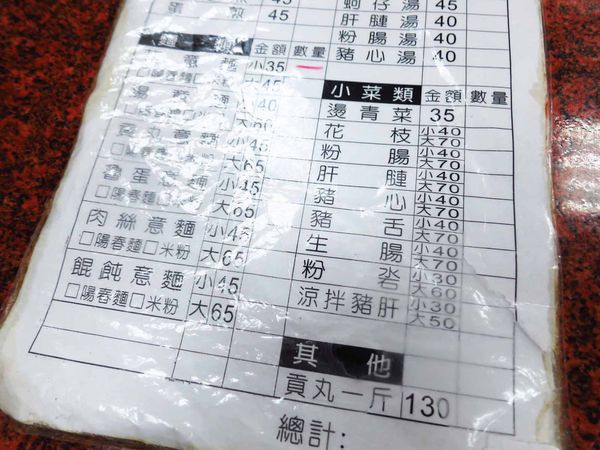 45
蚵仔湯 45
肝腱湯 40
粉腸湯 40
豬心湯 40
麵類 金額 數量
意麵 小35
□陽春麵□米粉 大45
湯意麵 小40
□陽春麵□米粉 大60
貢丸意麵 小45
□陽春麵□米粉 大65
魯蛋意麵 小45
□陽春麵□米粉 大65
肉絲意麵 小45
□陽春麵□米粉 大65
餛飩意麵 小45
□陽春麵□米粉 大65
小菜類 金額 數量
燙青菜 35
花枝 小40 大70
粉腸 小40 大70
肝腱 小40 大70
豬心 小40 大70
豬舌 小40 大70
生腸 小40 大70
粉 小30 大60
涼拌豬肝 小30 大50
其他
貢丸一斤 130
總計: